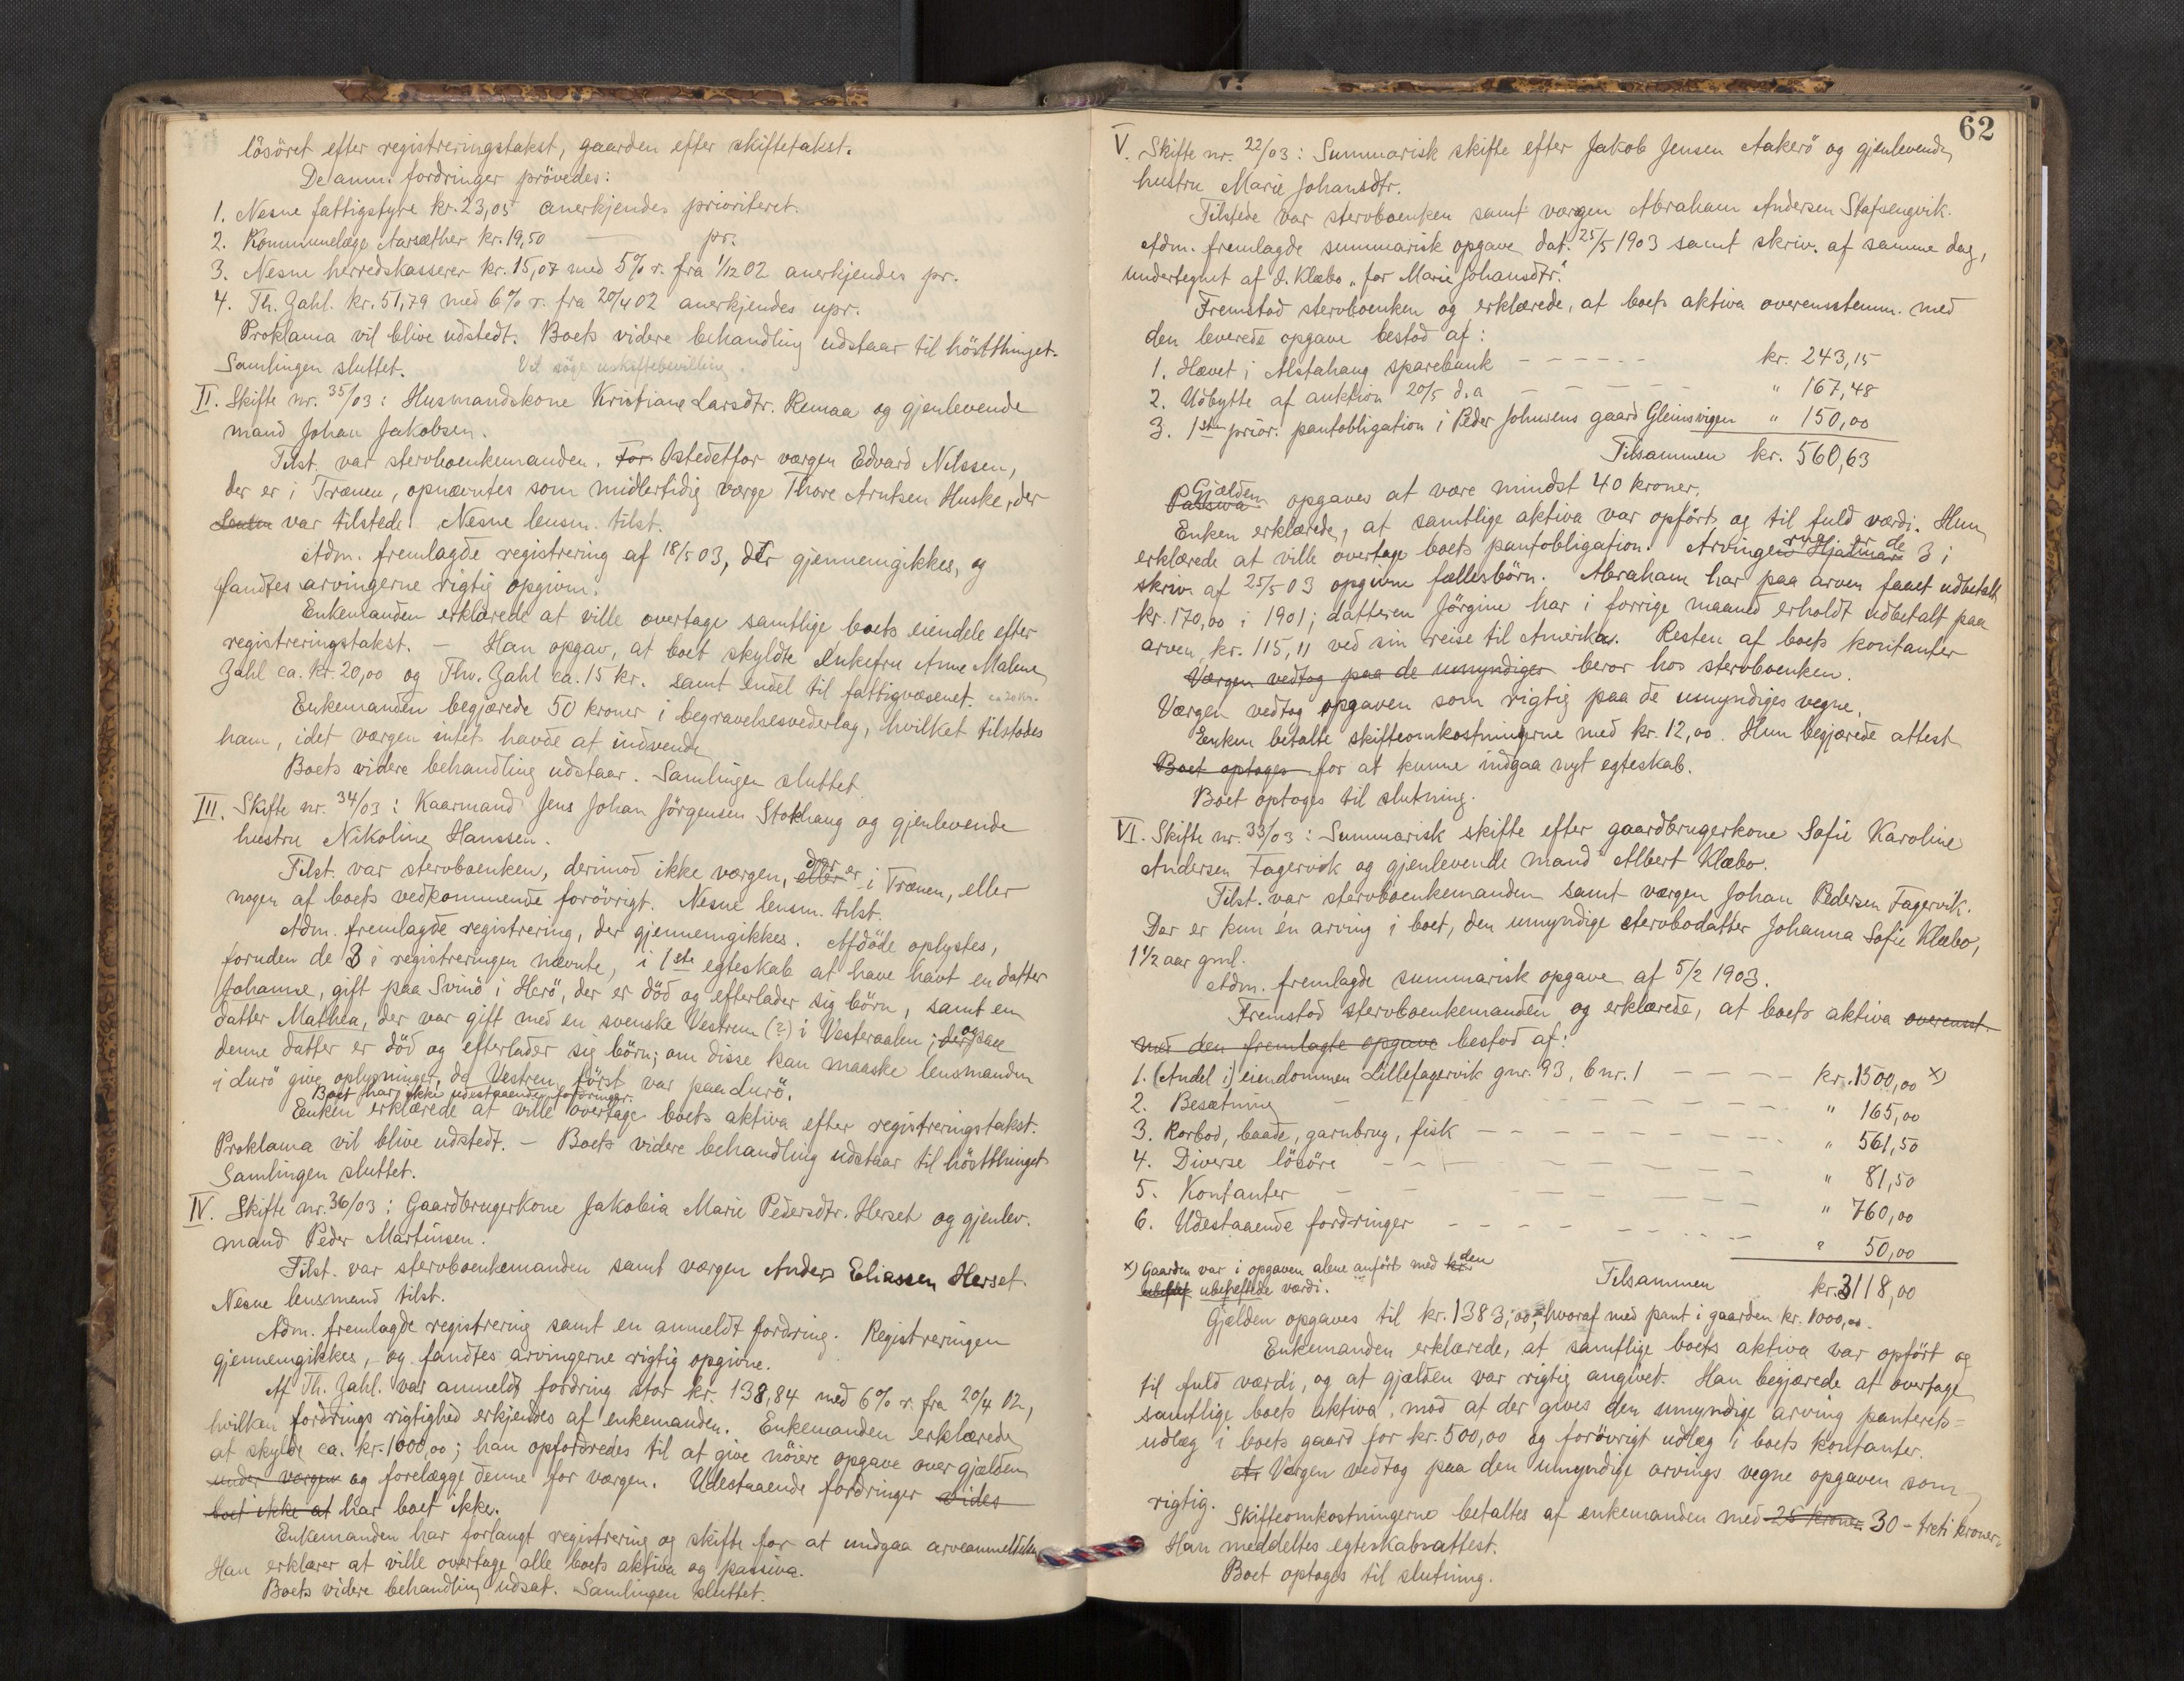 lösöret efter registreringstakst, gaarden efter skiftetakst.
De anm. fordringer prövedes:
1. Nesne fattigstyre kr. 23,05 anerkjendes prioriteret.
2. Kommunelæge Aarsæther kr. 19,50 — pr.
3. Nesne herredskasserer kr. 15,07 med 5% r. fra 1/12 02 anerkjendes pr.
4. Th. Zahl. kr. 51,79 med 6% r. fra 20/4 02 anerkjendes upr.
Proklama vil blive udstedt. Boets videre behandling udstaar til höstthinget.
Samlingen sluttet. Vil söge uskiftebevilling.
II. Skifte nr. 35/03: Husmandskone Kristiane Larsdtr. Remaa og gjenlevende
mand Johan Jakobsen.
Tilst. var stervboenkemanden. For Istedetfor værgen Edvard Nilssen,
der er i Trænen, opnævntes som midlertidig værge Thore Arntsen Huske, der
Lensm var tilstede. Nesne lensm. tilst.
Adm. fremlagde registrering af 18/5 03, der gjennemgikkes, og
fandtes arvingerne rigtig opgivne.
Enkemanden erklærede at ville overtage samtlige boets eiendele efter
registreringstakst. — Han opgav, at boet skyldte Enkefru Anne Malene
Zahl ca. kr. 20,00 og Thv. Zahl ca. 15 kr. samt endel til fattigvæsenet. ca 20 kr.
Enkemanden begjærede 50 kroner i begravelsesvederlag, hvilket tilstodes
ham, idet værgen intet havde at indvende
Boets videre behandling udstaar. Samlingen sluttet
III. Skifte nr. 34/03: Kaarmand Jens Johan Jörgensen Stokhaug og gjenlevende
hustru Nikoline Hanssen.
Tilst. var stervboenken, derimod ikke værgen, eller der er i Trænen, eller
nogen af boets vedkommende forövrigt. Nesne lensm. tilst.
Adm. fremlagde registrering, der gjennemgikkes. Afdöde oplystes,
foruden de 3 i registreringen nævnte, i 1ste egteskab at have havt en datter
Johanne, gift paa Svinö i Herö, der er död og efterlader sig börn, samt en
datter Mathea, der var gift med en svenske Vestrum (?) i Vesteraalen; og
denne datter er död og efterlader sig börn; om disse kan maaske lensmanden
i Lurö give oplysninger, da Vestren först var paa Lurö.
Boet har ikke udestaaende fordringer.
Enken erklærede at ville overtage boets aktiva efter registreringstakst.
Proklama vil blive udstedt. — Boets videre behandling udstaar til höstthinget
Samlingen sluttet.
IV. Skifte nr. 36/03: Gaardbrugerkone Jakobia Marie Pedersdtr. Herset og gjenlev.
mand Peder Martinsen.
Tilst. var stervboenkemanden samt værgen Anders Eliassen Herset.
Nesne lensmand tilst.
Adm. fremlagde registrering samt en anmeldt fordring. Registreringen
gjennemgikkes, og fandtes arvingerne rigtig opgivne.
Af Th. Zahl. var anmeldt fordring stor kr. 138,84 med 6% r. fra 20/4 02,
hvilken fordrings rigtighed erkjendes af enkemanden. Enkemanden erklærede
at skylde ca. kr. 1000,00; han opfordredes til at give nöiere opgave over gjælden
under værgen og forelægge denne for værgen. Udestaaende fordringer vides
boet ikke at har boet ikke.
Enkemanden har forlangt registrering og skifte for at undgaa arveanmeldelse
Han erklærer at ville overtage alle boets aktiva og passiva.
Boets videre behandling udsat. Samlingen sluttet.
62
V. Skifte nr. 22/03: Summarisk skifte efter Jakob Jensen Aakerö og gjenlevende
hustru Marie Johansdtr.
Tilstede var stervboenken samt værgen Abraham Andersen Stafsengvik.
Adm. fremlagde summarisk opgave dat. 25/5 1903 samt skriv. af samme dag,
undertegnet af J. Klæbo „for Marie Johansdtr."
Fremstod stervboenken og erklærede, at boets aktiva overensstemm. med
den leverede opgave bestod af:
1. Hævet i Alstahaug sparebank — kr. 243,15
2. Udbytte af auktion 20/5 d.a — " 167,48
3. 1ste prior. pantobligation i Peder Johnsens gaard Gleinsvigen " 150,00
Tilsammen kr. 560,63
Passiva Gjælden opgaves at være mindst 40 kroner.
Enken erklærede, at samtlige aktiva var opfört og til fuld værdi. Hun
erklærede at ville overtage boets pantobligation. Arvingerne er de 3 i
skriv. af 25/5 03 opgivne fællesbörn. Abraham har paa arven faaet udbetalt
kr. 170,00 i 1901; datteren Jörgine har i forrige maaned erholdt udbetalt paa
arven kr. 115,11 ved sin reise til Amerika. Resten af boets kontanter
Værgen vedtog paa de umyndiges beror hos stervboenken.
Værgen vedtog opgaven som rigtig paa de umyndiges vegne.
Enken betalte skifteomkostningerne med kr. 12,00. Hun begjærede attest
Boet optoges for at kunne indgaa nyt egteskab.
Boet optoges til slutning.
VI. Skifte nr. 33/03: Summarisk skifte efter gaardbrugerkone Sofie Karoline
Andersen Fagervik og gjenlevende mand Albert Klæbo.
Tilst. var stervboenkemanden samt værgen Johan Pedersen Fagervik.
Der er kun én arving i boet, den umyndige stervbodatter Johanna Sofie Klæbo,
1 1/2 aar gml.
Adm. fremlagde summarisk opgave af 5/2 1903.
Fremstod stervboenkemanden og erklærede, at boets aktiva overensst
med den fremlagte opgave bestod af:
1. (Andel i) eiendommen Lillefagervik gnr. 93, bnr. 1 — kr. 1500,00 x)
2. Besætning — " 165,00
3. Rorbod, baade, garnbrug, fisk — " 561,50
4. Diverse lösöre — " 81,50
5. Kontanter — " 760,00
6. Udestaaende fordringer — " 50,00
Tilsammen kr. 3118,00
x) Gaarden var i opgaven alene anfört med den
ubeheftede værdi.
Gjælden opgaves til kr. 1383,00, hvoraf med pant i gaarden kr. 1000,00.
Enkemanden erklærede, at samtlige boets aktiva var opfört og
til fuld værdi, og at gjælden var rigtig angivet. Han begjærede at overtage
samtlige boets aktiva, mod at der gives den umyndige arving panterets=
udlæg i boets gaard for kr. 500,00 og forövrigt udlæg i boets kontanter.
Værgen vedtog paa den umyndige arvings vegne opgaven som
rigtig. Skifteomkostningerne betaltes af enkemanden med 25 kroner 30 - treti kroner.
Han meddeltes egteskabsattest.
Boet optoges til slutning.